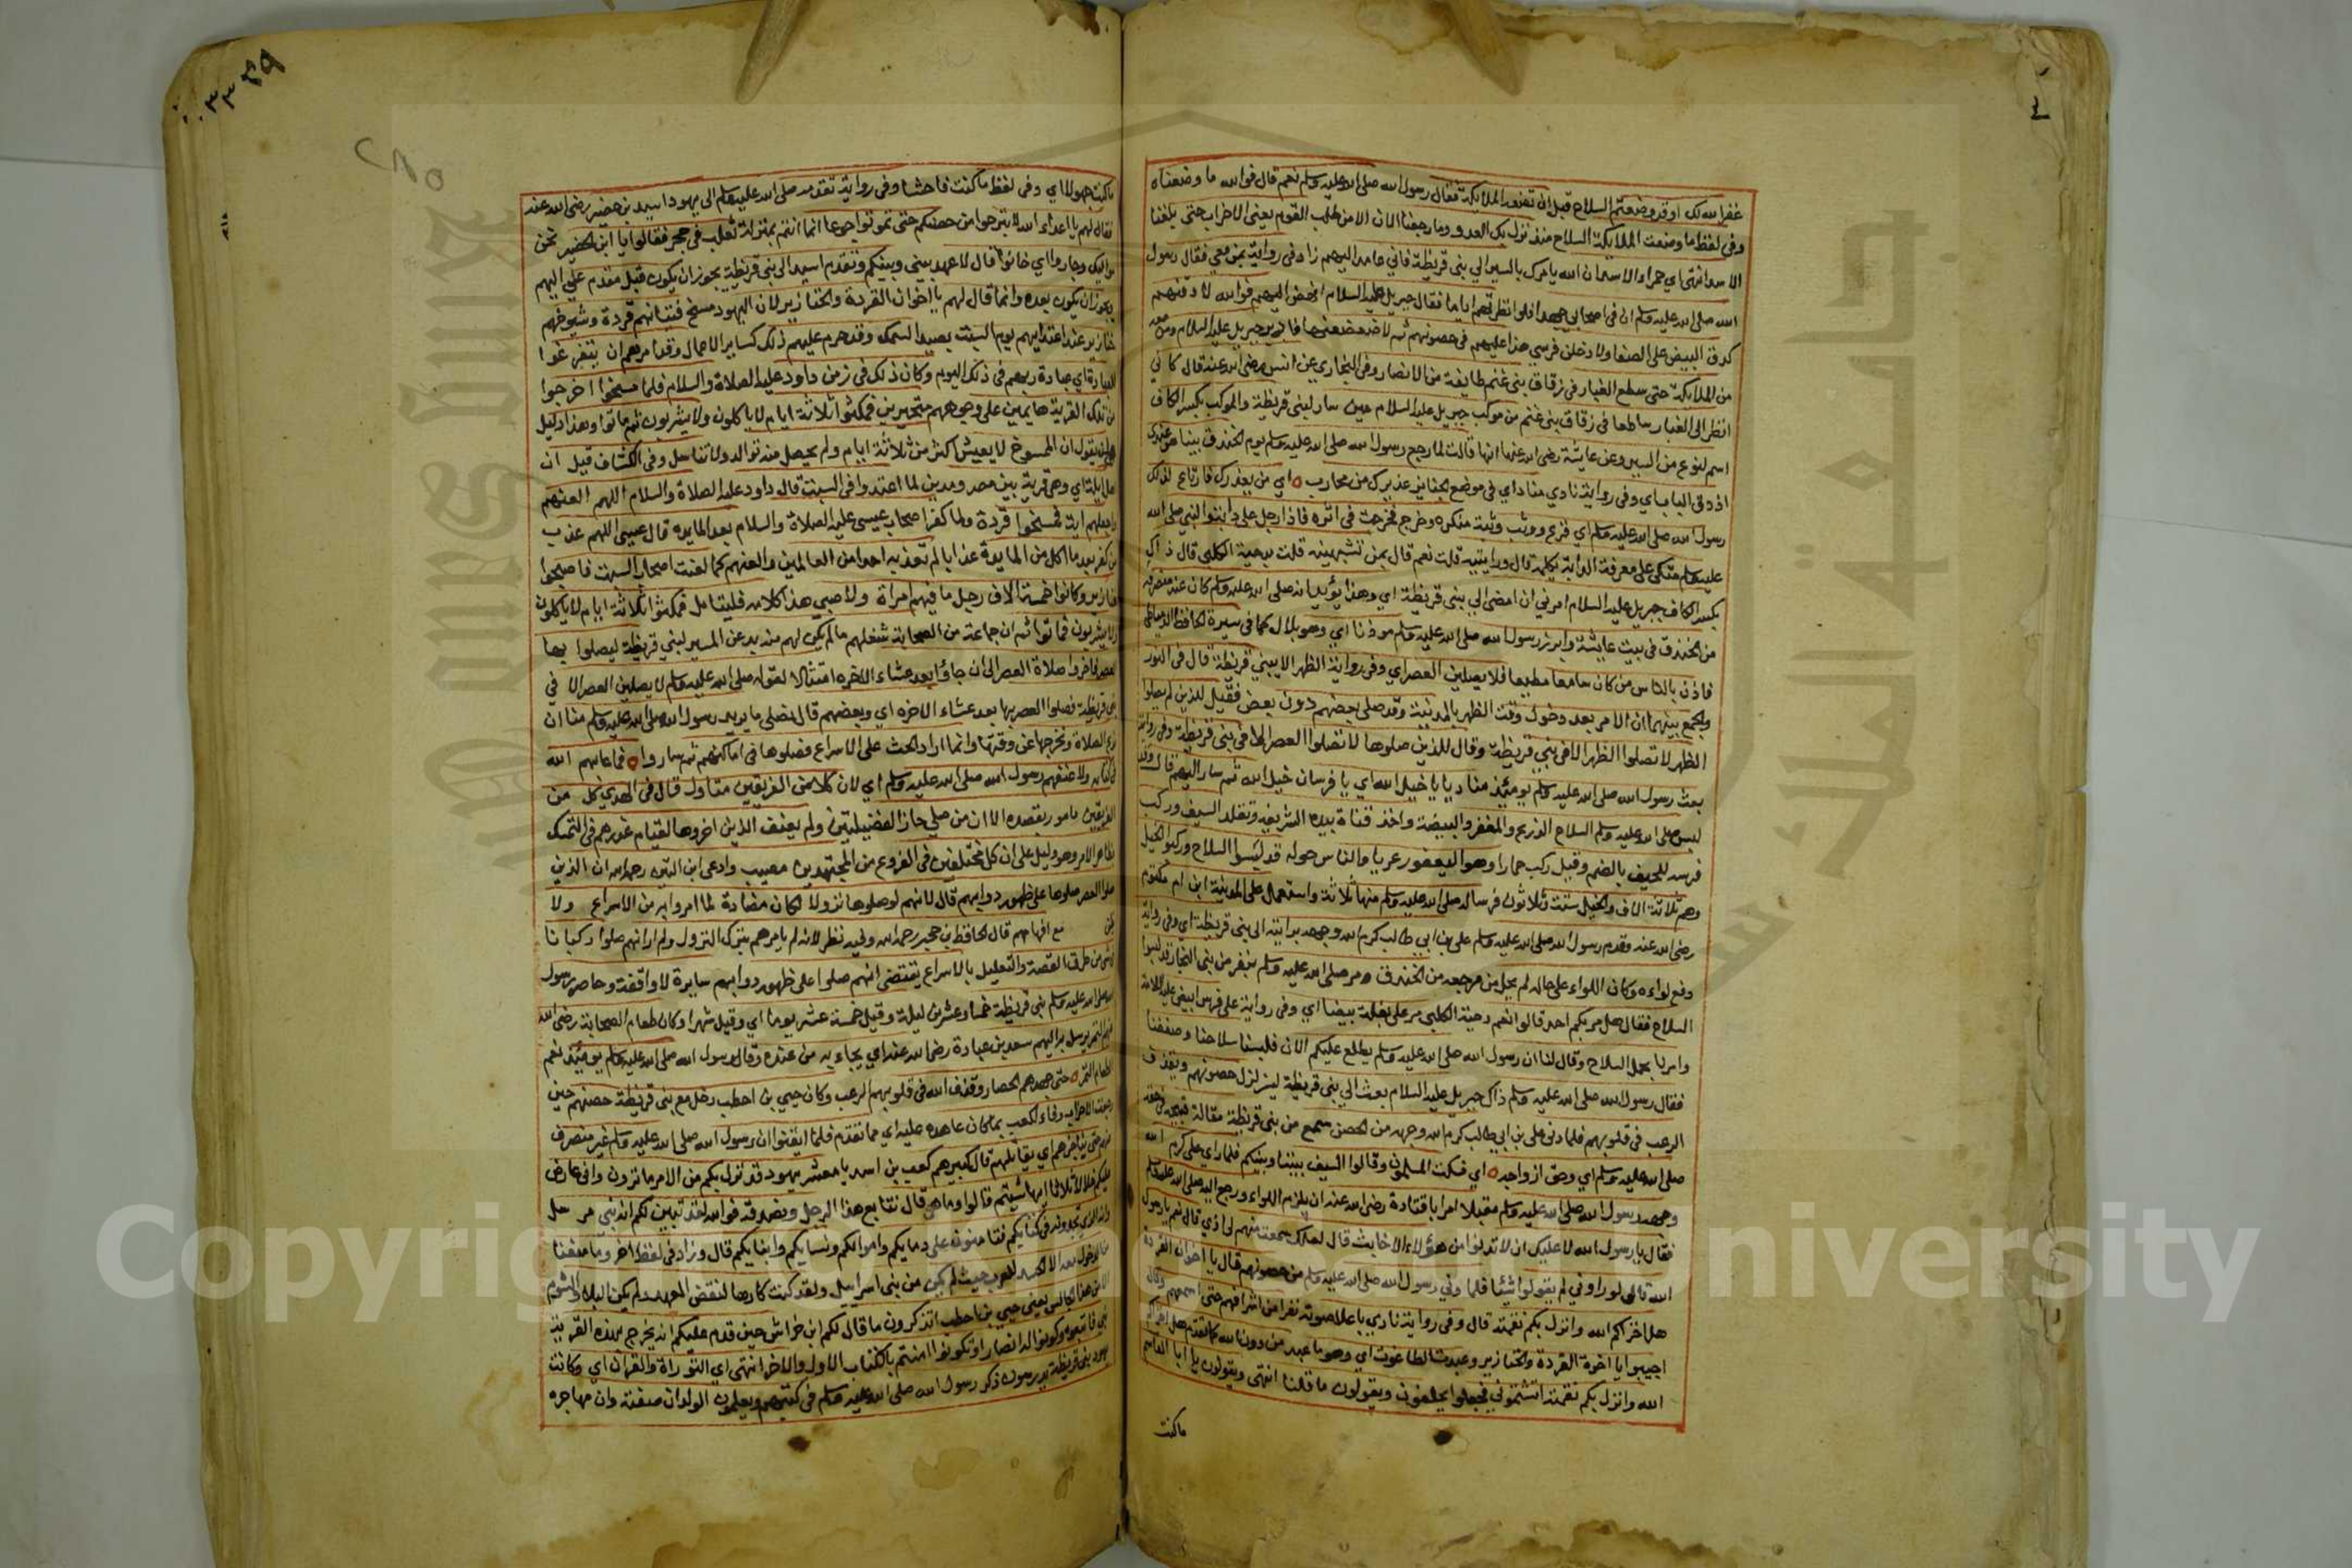 غفر الله لك اوقد وضعتم السلاح قبل ان تضعه الملايكة فقال رسول الله صلى الله عليه وسلم نعم قال فوالله ما وضعناه
وفى لفظ ما وضعت الملايكة السلاح منذ نزل بك العدو وما رجعنا الان الا من طلب القوم يعنى الاحزاب حتى بلغنا
الاسد انتهى اي حمرا الاسد ان الله يامرك بالسير الى بنى قريظة فاني عامد اليهم زاد فى رواية بمن معي فقال رسول
الله صلى الله عليه وسلم ان فى اصحابي جهدا فلو انظرتهم اياما فقال جبريل عليه السلام انهض اليهم فوالله لادقنهم
كدق البيض على الصفا ولادخلن فرسي هذا عليهم فى حصونهم ثم لاضعضعنها فادبر جبريل عليه السلام ومن معه
من الملايكة حتى سطع الغبار فى زقاق بنى غنم طايفة من الانصار وفى البخاري عن انس رضى الله عنه قال كاني
انظر الى الغبار ساطعا فى زقاق بنى غنم من موكب جبريل عليه السلام حين سار لبنى قريظة والموكب بكسر الكاف
اسم لنوع من السير وعن عايشة رضى الله عنها انها قالت لما رجع رسول الله صلى الله عليه وسلم يوم الخندق بينا هو عندى
اذ دق الباب اي وفى رواية نادي منادي فى موضع الجنايز عذيرك من محارب اي من يعذرك فارتاع لذلك
رسول الله صلى الله عليه وسلم اي فزع ووثب وثبة منكره وخرج فخرجت فى اثره فاذا رجل على دابة والنبى صلى الله
عليه وسلم متكى على معرفة الدابة يكلمه قال ورايتيه قلت نعم قال بمن تشبهينه قلت بدحية الكلبى قال ذاك
بكسر الكاف جبريل عليه السلام امرني ان امضى الى بنى قريظة اي وهذا يؤيد انه صلى الله عليه وسلم كان عند منصرفه
من الخندق فى بيت عايشة وامر رسول الله صلى الله عليه وسلم موذنا اي وهو بلال كما فى سيرة الحافظ الدمياطى
فاذن بالناس من كان سامعا مطيعا فلا يصلين العصر اي وفى رواية الظهر الا ببني قريظة قال فى النور
والجمع بينهما ان الامر بعد دخول وقت الظهر بالمدينة وقد صلى بعضهم دون بعض فقيل للذين لم يصلوا
الظهر لا تصلوا الظهر الا فى بني قريظة وقال للذين صلوها لا تصلوا العصر الا فى بنى قريظة وفى رواية
بعث رسول الله صلى الله عليه وسلم يومئذ مناديا يا خيل الله اي يا فرسان خيل الله ثم سار اليهم قال وقد
لبس صلى الله عليه وسلم السلاح الدرع والمغفر والبيضة واخذ قناة بيده الشريفه وتقلد السيف وركب
فرسه اللحيف بالضم وقيل ركب حمارا وهو اليعفور عريا والناس حوله قد لبسوا السلاح وركبوا الخيل
وهم ثلاثة الاف والخيل ستة وثلاثون فرسا له صلى الله عليه وسلم منها ثلاثة واستعمل على المدينة ابن ام مكتوم
رضى الله عنه وقدم رسول الله صلى الله عليه وسلم على بن ابى طالب كرم الله وجهه برايته الى بنى قريظة اي وفى رواية
دفع لواءه وكان اللواء على حاله لم يحل من مرجعه من الخندق ومر صلى الله عليه وسلم بنفر من بنى النجار قد لبسوا
السلاح فقال هل مر بكم احد قالوا نعم دحية الكلبى مر على بغلة بيضا اي وفى رواية على فرس ابيض عليه اللامة
وامرنا بحمل السلاح وقال لنا ان رسول الله صلى الله عليه وسلم يطلع عليكم الان فلبسنا سلاحنا وصففنا
فقال رسول الله صلى الله عليه وسلم ذاك جبريل عليه السلام بعث الى بنى قريظة ليزلزل حصونهم ويقذف
الرعب فى قلوبهم فلما دنى على بن ابى طالب كرم الله وجهه من الحصن سمع من بنى قريظة مقالة قبيحه فى حقه
صلى الله عليه وسلم اي وحق ازواجه اي فسكت المسلمون وقالوا السيف بيننا وبينكم فلما راي على كرم الله
وجهه رسول الله صلى الله عليه وسلم مقبلا امر ابا قتادة رضى الله عنه ان يلزم اللواء ورجع اليه صلى الله عليه وسلم
فقال يا رسول الله لا عليك ان لا تدنوا من هؤلاء الاخابث قال لعلك سمعت منهم لى اذي قال نعم يا رسول
الله قال لو راوني لم يقولوا شيئا فلما دنى رسول الله صلى الله عليه وسلم من حصونهم قال يا اخوان القردة
هل اخزاكم الله وانزل بكم نقمته قال وفى رواية نادي باعلا صوته نفرا من اشرافهم حتى اسمعهم وقال
اجيبوا يا اخوة القردة والخنازير وعبدة الطاغوت اي وهو ما عبد من دون الله كما تقدم هل اخزاكم
الله وانزل بكم نقمته اتشتموني فجعلوا يحلفون ويقولون ما قلنا انتهى ويقولون يا ابا القاسم
ماكنت
ماكنت جهولا اي وفى لفظ ما كنت فاحشا وفى رواية تقدمه صلى الله عليه وسلم الى يهود اسيد بن حضير رضى الله عنه
فقال لهم يا اعداء الله لا تبرحوا من حصنكم حتى تموتوا جوعا انما انتم بمنزلة ثعلب فى جحر فقالوا يا ابن الحضير نحن
مواليك وخاروا اي خافوا قال لا عهد بيني وبينكم وتقدم اسيد الى بنى قريظة يجوز ان يكون قبل مقدم علي اليهم
ويجوز ان يكون بعده وانما قال لهم يا اخوان القردة والخنازير لان اليهود مسخ فتيانهم قردة وشيوخهم
خنازير عند اعتدايهم يوم السبت بصيد السمك وقد حرم عليهم ذلك كساير الاعمال وقد امرهم ان يتفرغوا
للعبادة اي عبادة ربهم فى ذلك اليوم وكان ذلك فى زمن داود عليه الصلاة والسلام فلما مسخوا اخرجوا
من تلك القرية هايمين على وجوههم متحيرين فمكثوا ثلاثة ايام لا ياكلون ولا يشربون ثم ماتوا وهذا دليل
لمن يقول ان الممسوخ لا يعيش اكثر من ثلاثة ايام ولم يحصل منه توالد ولا تناسل وفى الكشاف قيل ان
اهل ايلة اي وهى قرية بين مصر ومدين لما اعتدوا فى السبت قال داود عليه الصلاة والسلام اللهم العنهم
واجعلهم اية فمسخوا قردة ولما كفر اصحاب عيسى عليه الصلاة والسلام بعد المايدة قال عيسى اللهم عذب
من كفر بعد ما اكل من المايدة عذابا لم تعذبه احدا من العالمين والعنهم كما لعنت اصحاب السبت فاصبحوا
خنازير وكانوا خمسة الاف رجل ما فيهم امراة ولا صبي هذا كلامه فليتامل فمكثوا ثلاثة ايام لا ياكلون
ولا يشربون فماتوا ثم ان جماعة من الصحابة شغلهم ما لم يكن لهم منه بد عن المسير لبنى قريظة ليصلوا بها
العصر فاخروا صلاة العصر الى ان جاؤا بعد عشاء الاخره امتثالا لقوله صلى الله عليه وسلم لا يصلين العصر الا فى
بنى قريظة فصلوا العصر بها بعد عشاء الاخره اي وبعضهم قال نصلى ما يريد رسول الله صلى الله عليه وسلم منا ان
ندع الصلاة ونخرجها عن وقتها وانما اراد الحث على الاسراع فصلوها فى اماكنهم ثم ساروا فما عابهم الله
فى كتابه ولا عنفهم رسول الله صلى الله عليه وسلم اي لان كلا من الفريقين متاول قال فى الهدي كل من
الفريقين مامور بقصده الا ان من صلى حاز الفضيلتين ولم يعنف الذين اخروها لقيام عذرهم فى التمسك
بظاهر الامر وهو دليل على ان كل مختلفين فى الفروع من المجتهدين مصيب وادعى ابن التين رحمه الله ان الذين
صلوا العصر صلوها على ظهور دوابهم قال لانهم لو صلوها نزولا لكان مضادة لما امروا به من الاسراع ولا
يظن مع افهامهم قال الحافظ بن حجر رحمه الله وفيه نظر لانه لم يامرهم بترك النزول ولم ار انهم صلوا ركبانا
فى شى من طرق القصة والتعليل بالاسراع يقتضى انهم صلوا على ظهور دوابهم سايرة لا واقفة وحاصر رسول
الله صلى الله عليه وسلم بنى قريظة خمسا وعشرين ليلة وقيل خمسة عشر يوما اي وقيل شهرا وكان طعام الصحابة رضى الله
عنهم التمر يرسل به اليهم سعد بن عبادة رضى الله عنه اي يجاء به من عنده وقال رسول الله صلى الله عليه وسلم يومئذ نعم
الطعام التمر حتى جهدهم الحصار وقذف الله فى قلوبهم الرعب وكان حيي بن اخطب دخل مع بنى قريظة حصنهم حين
رجعت الاحزاب وفاء لكعب بما كان عاهده عليه اي مما تقدم فلما ايقنوا ان رسول الله صلى الله عليه وسلم غير منصرف
عنهم حتى يناجزهم اي يقاتلهم قال كبيرهم كعب بن اسد يا معشر يهود قد نزل بكم من الامر ما ترون وانى عارض
عليكم خلالا ثلاثا ايها شيتم قالوا وما هى قال نتابع هذا الرجل ونصدقه فوالله لقد تبين لكم انه نبي مرسل
وانه الذي تجدونه فى كتابكم فتامنون على دمايكم واموالكم ونسايكم وابنايكم قال وزاد فى لفظ اخر وما منعنا
من الدخول معه الا الحسد للعرب حيث لم يكن من بنى اسراييل ولقد كنت كارها لنقض العهد ولم يكن البلا والشوم
الا من هذا الجالس يعنى حيي بن اخطب اتذكرون ما قال لكم ابن خراش حين قدم عليكم انه يخرج بهذه القرية
نبي فاتبعوه وكونوا له انصارا وتكونوا امنتم بالكتاب الاول والاخر انتهى اي التوراة والقران اي وكانت
يهود بنى قريظة يدرسون ذكر رسول الله صلى الله عليه وسلم فى كتبهم ويعلمون الولدان صفته وان مهاجره
Copyright
niversity